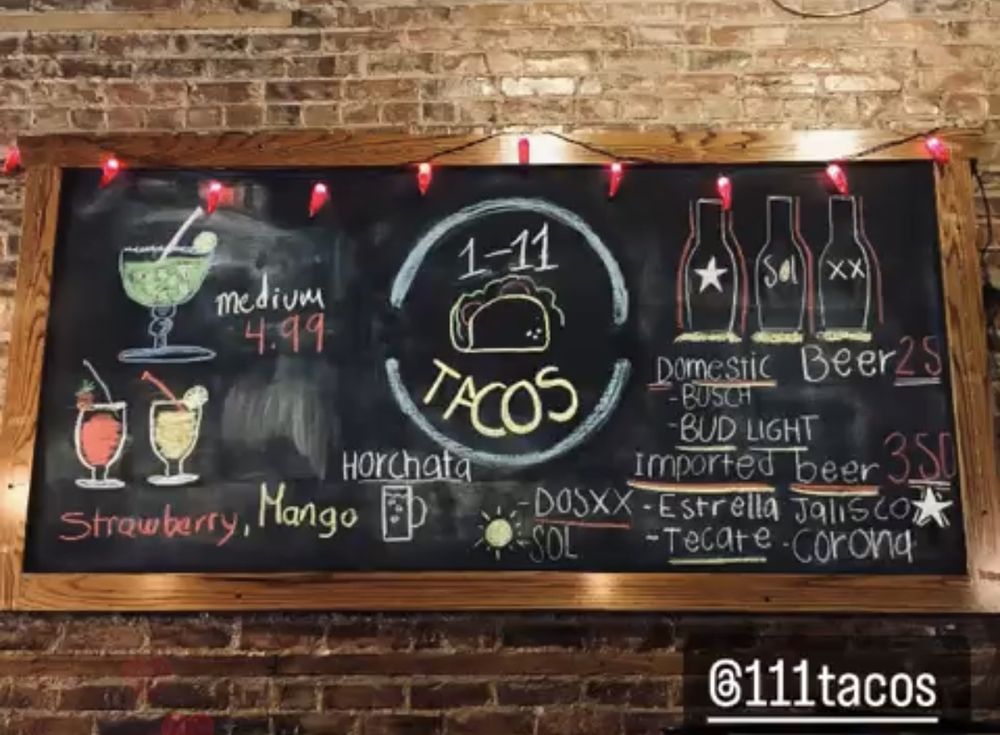 1-11
TACOS
medium
4.99
Strawberry, Mango
Horchata
Sol
XX
Domestic Beer 25
- BUSCH
- BUD LIGHT
imported beer 350
- DOSXX - Estrella Jalisco
- SOL - Tecate - Corona
@111tacos